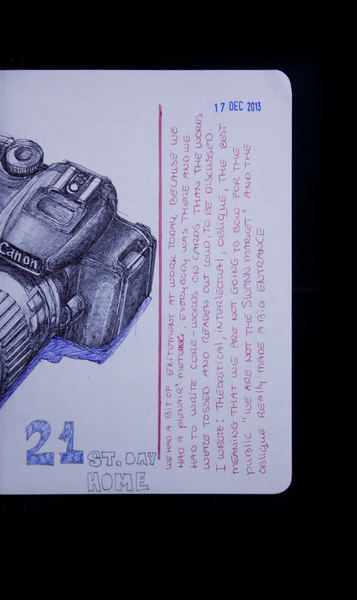 17 DEC 2013
WE HAD A BIT OF EXITEMENT AT WORK TODAY, BECAUSE WE
HAD A PLENAIR' MEETING. EVERYBODY WAS THERE AND WE
HAD TO WRITE CORE-WORDS ON CARDS THAN THE WORDS
WERE TOSSED AND READEN OUT LOUD. TO BE DISCUSSED
I WROTE: THEORITICAL, INTERLECTUAL, OBLIQUE, THE BEST
MEANING THAT WE ARE NOT GOING TO BOW FOR THE
PUBLIC "WE ARE NOT THE SWANN MARKET" AND THE
OBLIQUE REALLY MADE A BIG ENTRANCE
Canon
21 ST. DAY
HOME